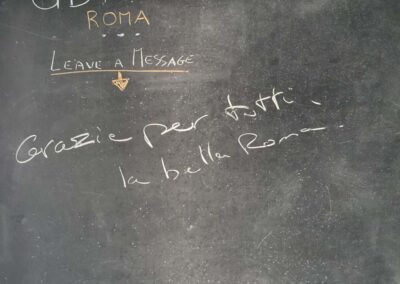 ROMA
LEAVE A MESSAGE
Grazie per tutti.
la bella Roma.